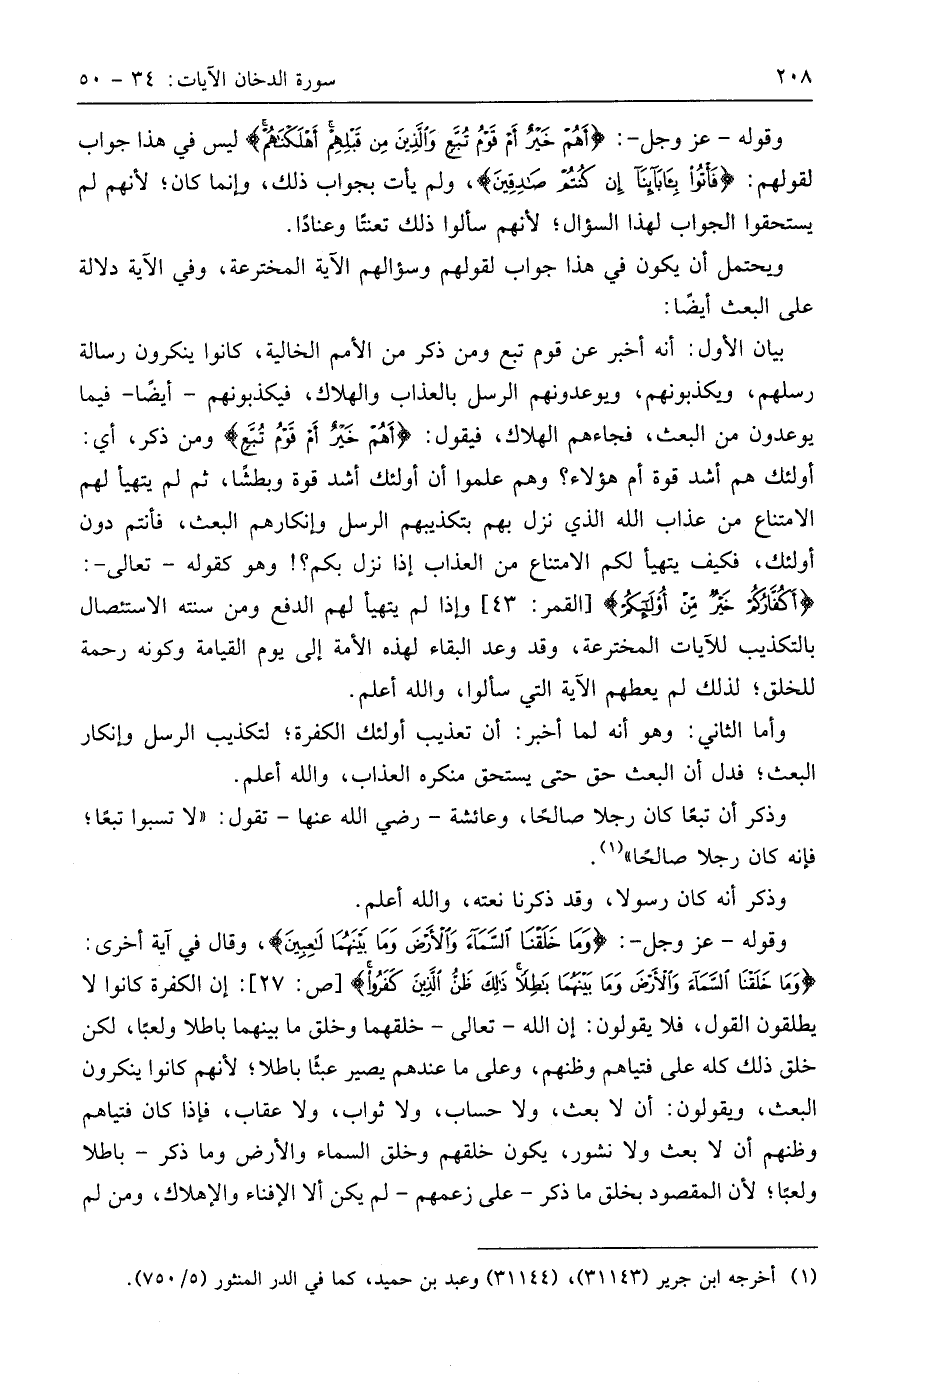 ٢٠٨ سورة الدخان الآيات: ٣٤ - ٥٠
وقوله - عز وجل-: ﴿أَهُمْ خَيْرٌ أَمْ قَوْمُ تُبَّعٍ وَٱلَّذِينَ مِن قَبْلِهِمْ أَهْلَكْنَٰهُمْ﴾ ليس في هذا جواب
لقولهم: ﴿فَأْتُوا۟ بِـَٔابَآئِنَآ إِن كُنتُمْ صَٰدِقِينَ﴾، ولم يأت بجواب ذلك، وإنما كان؛ لأنهم لم
يستحقوا الجواب لهذا السؤال؛ لأنهم سألوا ذلك تعنتًا وعنادًا.
ويحتمل أن يكون في هذا جواب لقولهم وسؤالهم الآية المخترعة، وفي الآية دلالة
على البعث أيضًا:
بيان الأول: أنه أخبر عن قوم تبع ومن ذكر من الأمم الخالية، كانوا ينكرون رسالة
رسلهم، ويكذبونهم، ويوعدونهم الرسل بالعذاب والهلاك، فيكذبونهم - أيضًا- فيما
يوعدون من البعث، فجاءهم الهلاك، فيقول: ﴿أَهُمْ خَيْرٌ أَمْ قَوْمُ تُبَّعٍ﴾ ومن ذكر، أي:
أولئك هم أشد قوة أم هؤلاء؟ وهم علموا أن أولئك أشد قوة وبطشًا، ثم لم يتهيأ لهم
الامتناع من عذاب الله الذي نزل بهم بتكذيبهم الرسل وإنكارهم البعث، فأنتم دون
أولئك، فكيف يتهيأ لكم الامتناع من العذاب إذا نزل بكم؟! وهو كقوله - تعالى-:
﴿أَكُفَّارُكُمْ خَيْرٌ مِّنْ أُو۟لَٰٓئِكُمْ﴾ [القمر: ٤٣] وإذا لم يتهيأ لهم الدفع ومن سنته الاستئصال
بالتكذيب للآيات المخترعة، وقد وعد البقاء لهذه الأمة إلى يوم القيامة وكونه رحمة
للخلق؛ لذلك لم يعطهم الآية التي سألوا، والله أعلم.
وأما الثاني: وهو أنه لما أخبر: أن تعذيب أولئك الكفرة؛ لتكذيب الرسل وإنكار
البعث؛ فدل أن البعث حق حتى يستحق منكره العذاب، والله أعلم.
وذكر أن تبعًا كان رجلا صالحًا، وعائشة - رضي الله عنها - تقول: «لا تسبوا تبعًا؛
فإنه كان رجلا صالحًا»(١).
وذكر أنه كان رسولا، وقد ذكرنا نعته، والله أعلم.
وقوله - عز وجل-: ﴿وَمَا خَلَقْنَا ٱلسَّمَآءَ وَٱلْأَرْضَ وَمَا بَيْنَهُمَا لَٰعِبِينَ﴾، وقال في آية أخرى:
﴿وَمَا خَلَقْنَا ٱلسَّمَآءَ وَٱلْأَرْضَ وَمَا بَيْنَهُمَا بَٰطِلًا ذَٰلِكَ ظَنُّ ٱلَّذِينَ كَفَرُوا۟﴾ [ص: ٢٧]: إن الكفرة كانوا لا
يطلقون القول، فلا يقولون: إن الله - تعالى - خلقهما وخلق ما بينهما باطلا ولعبًا، لكن
خلق ذلك كله على فتياهم وظنهم، وعلى ما عندهم يصير عبثًا باطلا؛ لأنهم كانوا ينكرون
البعث، ويقولون: أن لا بعث، ولا حساب، ولا ثواب، ولا عقاب، فإذا كان فتياهم
وظنهم أن لا بعث ولا نشور، يكون خلقهم وخلق السماء والأرض وما ذكر - باطلا
ولعبًا؛ لأن المقصود بخلق ما ذكر - على زعمهم - لم يكن ألا الإفناء والإهلاك، ومن لم
(١) أخرجه ابن جرير (٣١١٤٣)، (٣١١٤٤) وعبد بن حميد، كما في الدر المنثور (٧٥٠/٥).